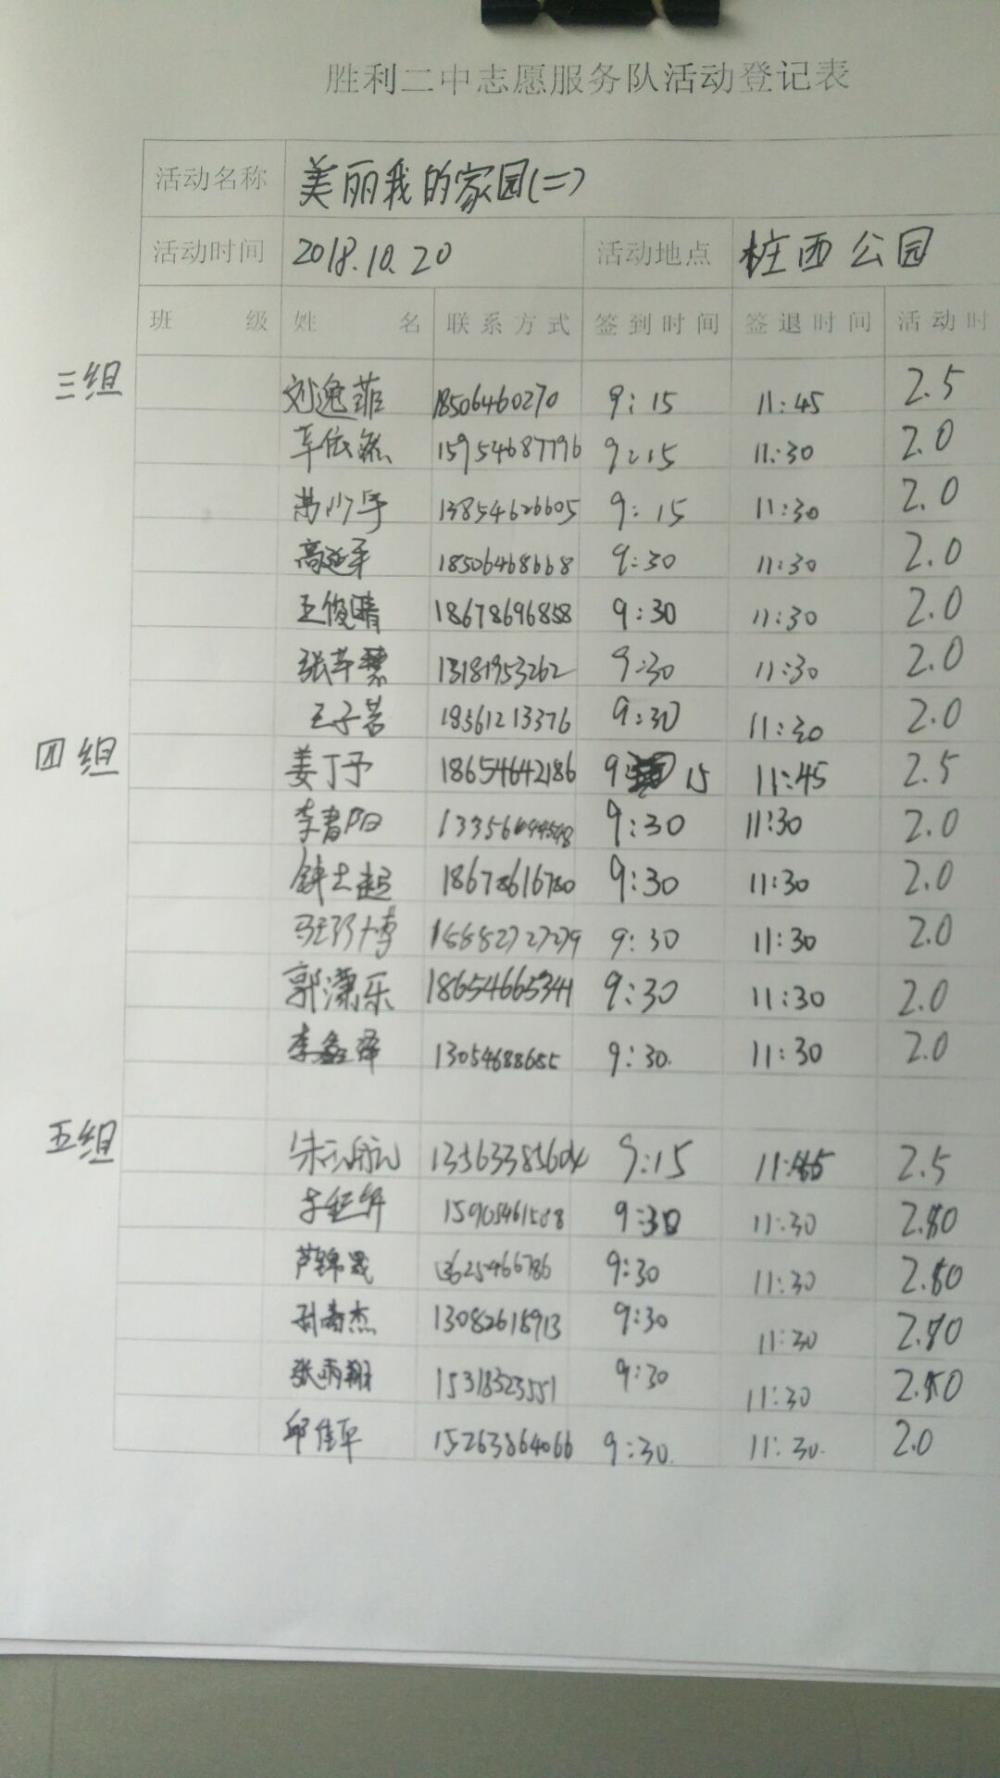 胜利二中志愿服务队活动登记表
活动名称 美丽我的家园(二)
活动时间 2018.10.20 活动地点 桩西公园
班 级 姓 名 联系方式 签到时间 签退时间 活动时
三组 刘逸菲 18506460270 9:15 11:45 2.5
车依 15954687796 9:15 11:30 2.0
13854626605 9:15 11:30 2.0
高延军 18506468668 9:30 11:30 2.0
王俊晴 18678696858 9:30 11:30 2.0
张芊慧 13181953262 9:30 11:30 2.0
王子若 18361213376 9:30 11:30 2.0
四组 姜丁予 18654642186 9 15 11:45 2.5
李春阳 9:30 11:30 2.0
钟士超 18678616780 9:30 11:30 2.0
9:30 11:30 2.0
郭潇乐 18654665341 9:30 11:30 2.0
李鑫泽 13054688655 9:30. 11:30 2.0
五组 朱云航 13363385604 9:15 11:45 2.5
15905461588 9:30 11:30 2.0
芦锦晟 13625466786 9:30 11:30 2.0
杰 13082618913 9:30 11:30 2.0
张雨翔 15318323551 9:30 11:30 2.0
邱佳平 15263864066 9:30. 11:30. 2.0